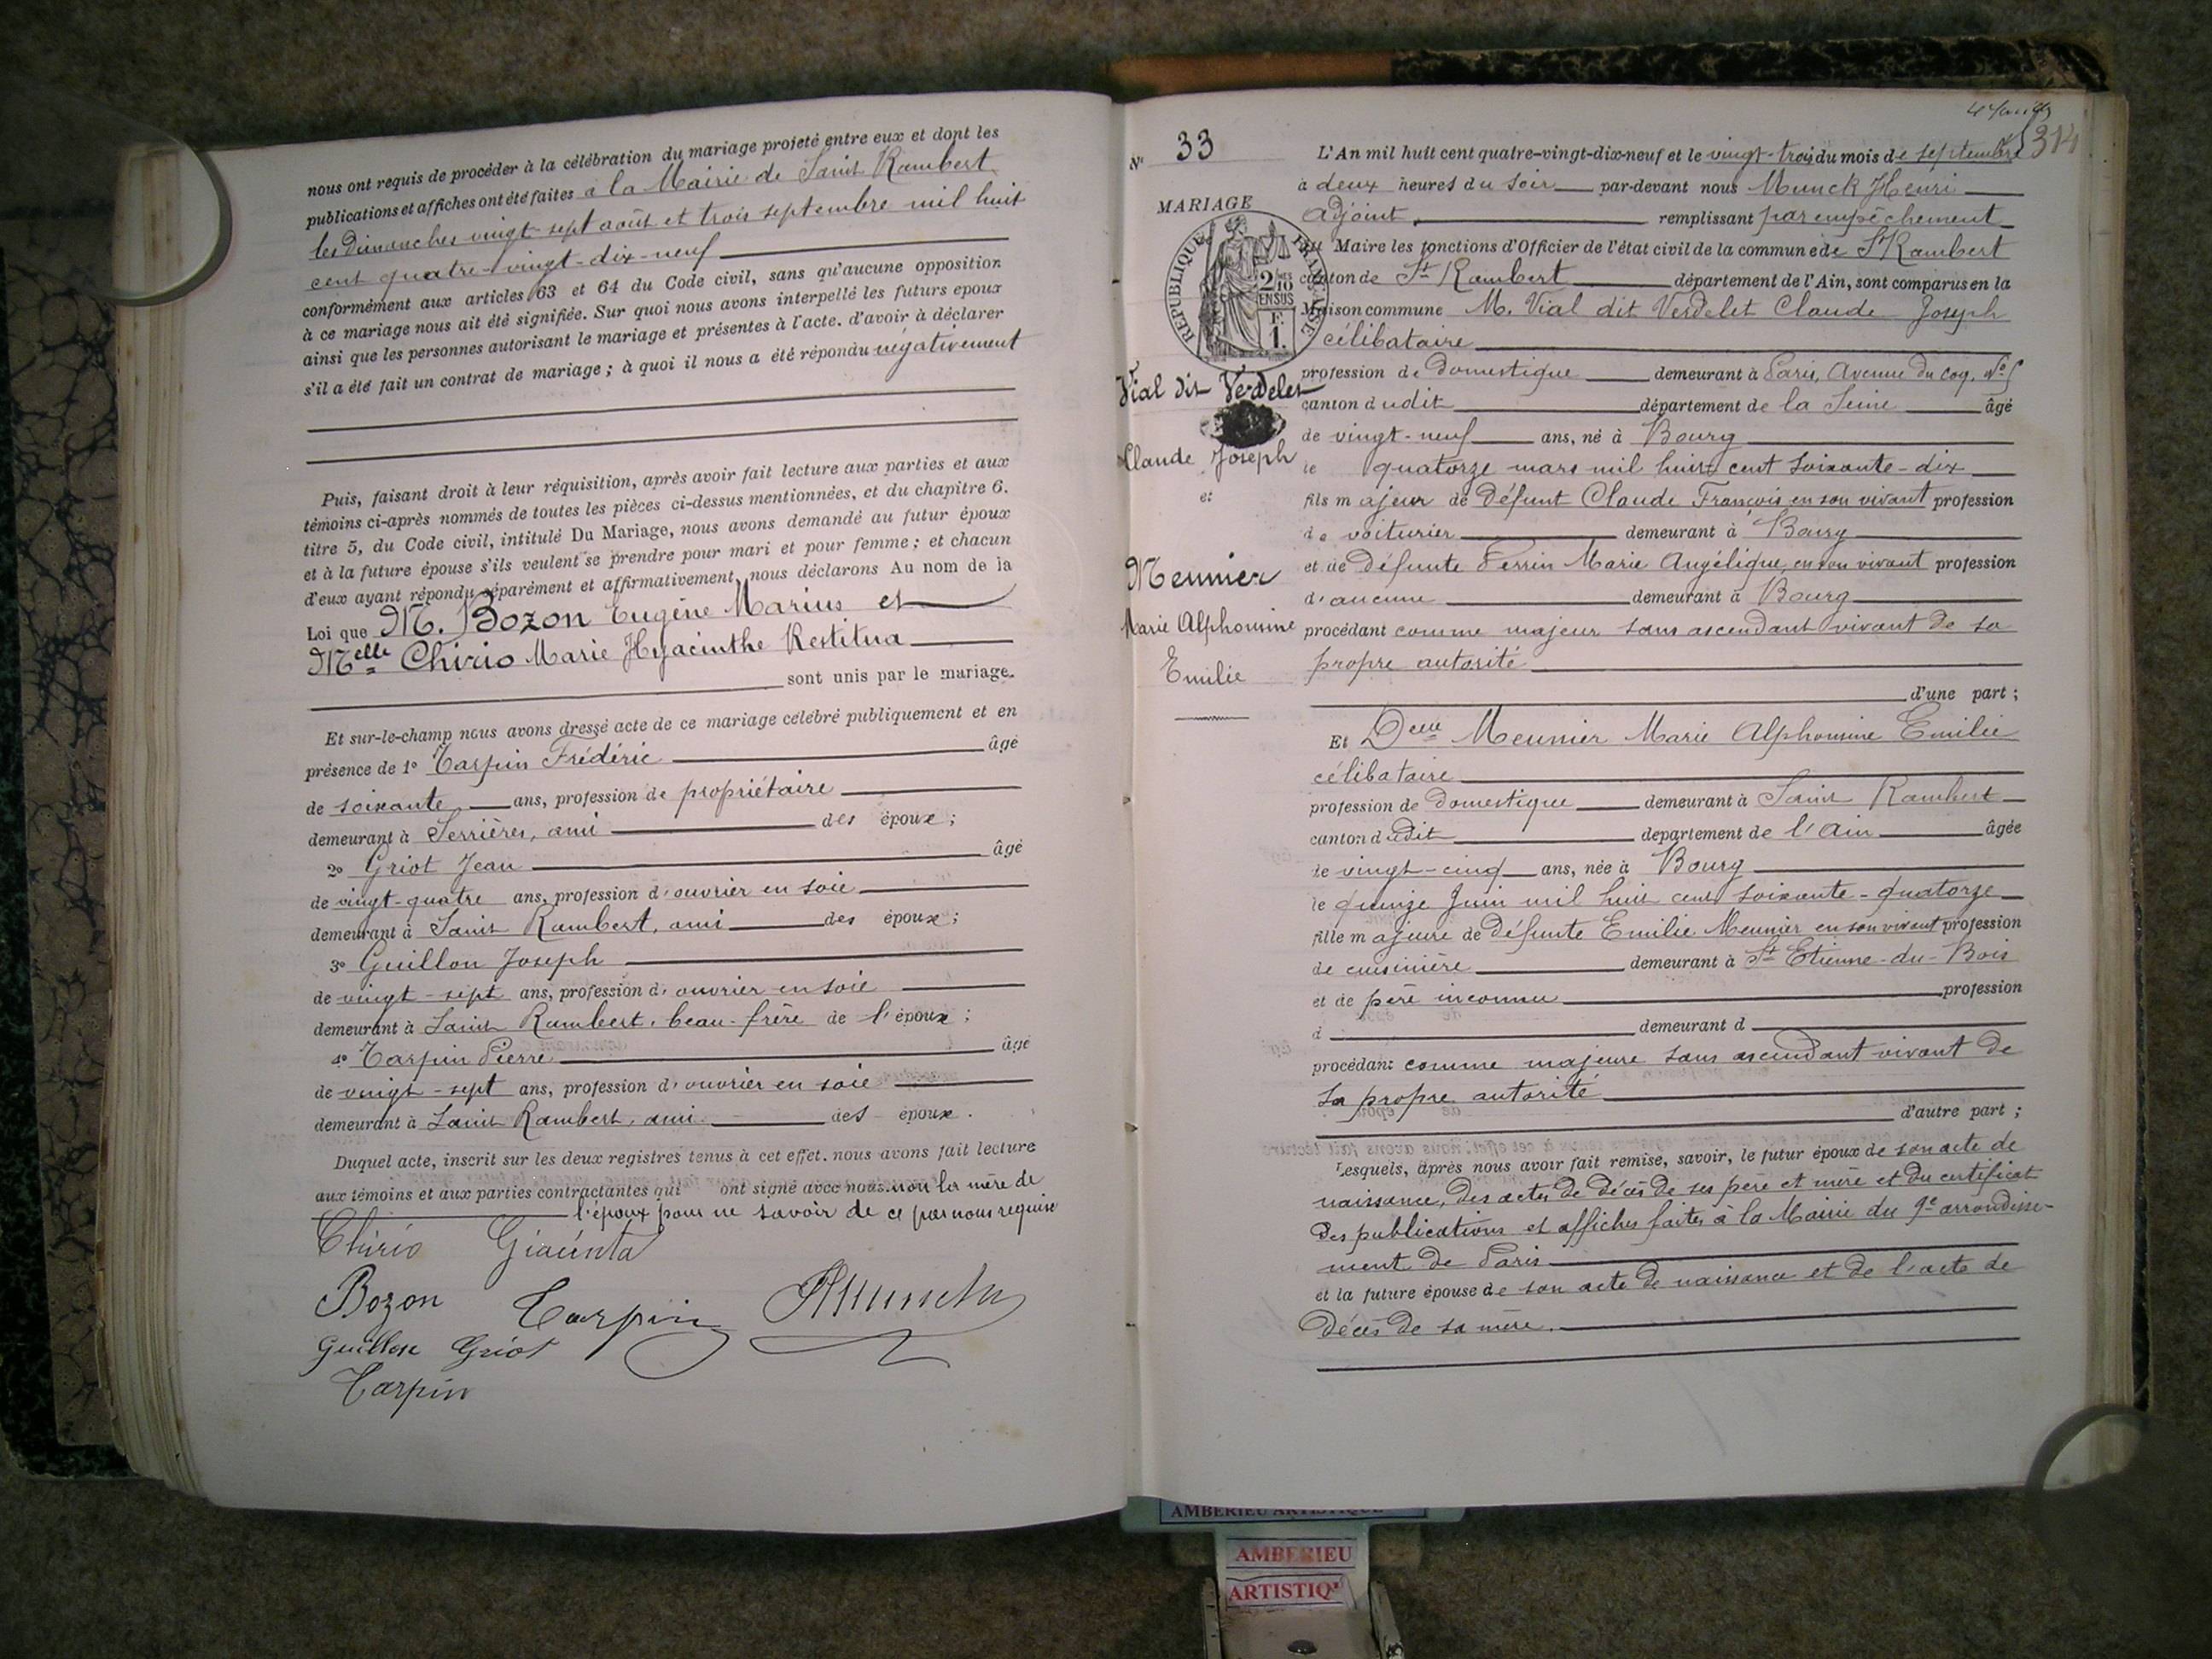 nous ont requis de procéder à la célébration du mariage projeté entre eux et dont les
publications et affiches ont été faites à la Mairie de Saint Rambert
les dimanches vingt-sept août et trois septembre mil huit
cent quatre-vingt-dix-neuf
conformément aux articles 63 et 64 du Code civil, sans qu'aucune opposition
à ce mariage nous ait été signifiée. Sur quoi nous avons interpellé les futurs epoux
ainsi que les personnes autorisant le mariage et présentes à l'acte. d'avoir à déclarer
s'il a été fait un contrat de mariage ; à quoi il nous a été répondu négativement
Puis, faisant droit à leur réquisition, après avoir fait lecture aux parties et aux
témoins ci-après nommés de toutes les pièces ci-dessus mentionnées, et du chapitre 6.
titre 5, du Code civil, intitulé Du Mariage, nous avons demandé au futur époux
et à la future épouse s'ils veulent se prendre pour mari et pour femme ; et chacun
d'eux ayant répondu séparément et affirmativement, nous déclarons Au nom de la
Loi que M. Bozon Eugène Marius et
Melle Chirio Marie Hyacinthe Restitua
sont unis par le mariage.
Et sur-le-champ nous avons dressé acte de ce mariage célébré publiquement et en
présence de 1° Tarpin Frédéric âgé
de soixante ans, profession de propriétaire
demeurant à Serrières, ami des époux ;
2° Griot Jean âgé
de vingt-quatre ans, profession d'ouvrier en soie
demeurant à Saint Rambert, ami des époux ;
3° Guillon Joseph
de vingt-sept ans, profession d'ouvrier en soie
demeurant à Saint Rambert, beau-frère de l'époux ;
4° Tarpin Pierre âgé
de vingt-sept ans, profession d'ouvrier en soie
demeurant à Saint Rambert, ami des époux.
Duquel acte, inscrit sur les deux registres tenus à cet effet. nous avons fait lecture
aux témoins et aux parties contractantes qui ont signé avec nous non la mère de
l'époux pour ne savoir de ce par nous requise
Chirio Giacinta
Bozon Tarpin
Guillon Griot
Tarpin
314
N° 33
MARIAGE
REPUBLIQUE FRANÇAISE
2/10 EN SUS
1 F.
Vial dit Verdelet
Claude Joseph
et
Meunier
Marie Alphonsine
Emilie
L'An mil huit cent quatre-vingt-dix-neuf et le vingt-trois du mois de septembre
à deux heures du soir par-devant nous Munck Henri
adjoint, remplissant par empêchement
du Maire les fonctions d'Officier de l'état civil de la commune de St Rambert
canton de St Rambert département de l'Ain, sont comparus en la
Maison commune M. Vial dit Verdelet Claude Joseph
célibataire
profession de domestique demeurant à Paris, Avenue du Coq, N° 5
canton dudit département de la Seine âgé
de vingt-neuf ans, né à Bourg
le quatorze mars mil huit cent soixante-dix
fils majeur de défunt Claude François en son vivant profession
de voiturier demeurant à Bourg
et de défunte Perrin Marie Angélique, en son vivant profession
d'aucune demeurant à Bourg
procédant comme majeur sans ascendant vivant de sa
propre autorité
d'une part ;
Et Delle Meunier Marie Alphonsine Emilie
célibataire
profession de domestique demeurant à Saint Rambert
canton dudit departement de l'Ain âgée
de vingt-cinq ans, née à Bourg
le quinze Juin mil huit cent soixante-quatorze
fille majeure de défunte Emilie Meunier en son vivant profession
de cuisinière demeurant à St Etienne-du-Bois
et de père inconnu profession
d demeurant d
procédant comme majeure sans ascendant vivant de
sa propre autorité
d'autre part ;
Lesquels, après nous avoir fait remise, savoir, le futur époux de son acte de
naissance, des actes de décès de ses père et mère et du certificat
des publications et affiches faites à la Mairie du 9e arrondisse-
ment de Paris
et la future épouse de son acte de naissance et de l'acte de
décès de sa mère.
AMBERIEU ARTISTIQUE
AMBERIEU
ARTISTIQ